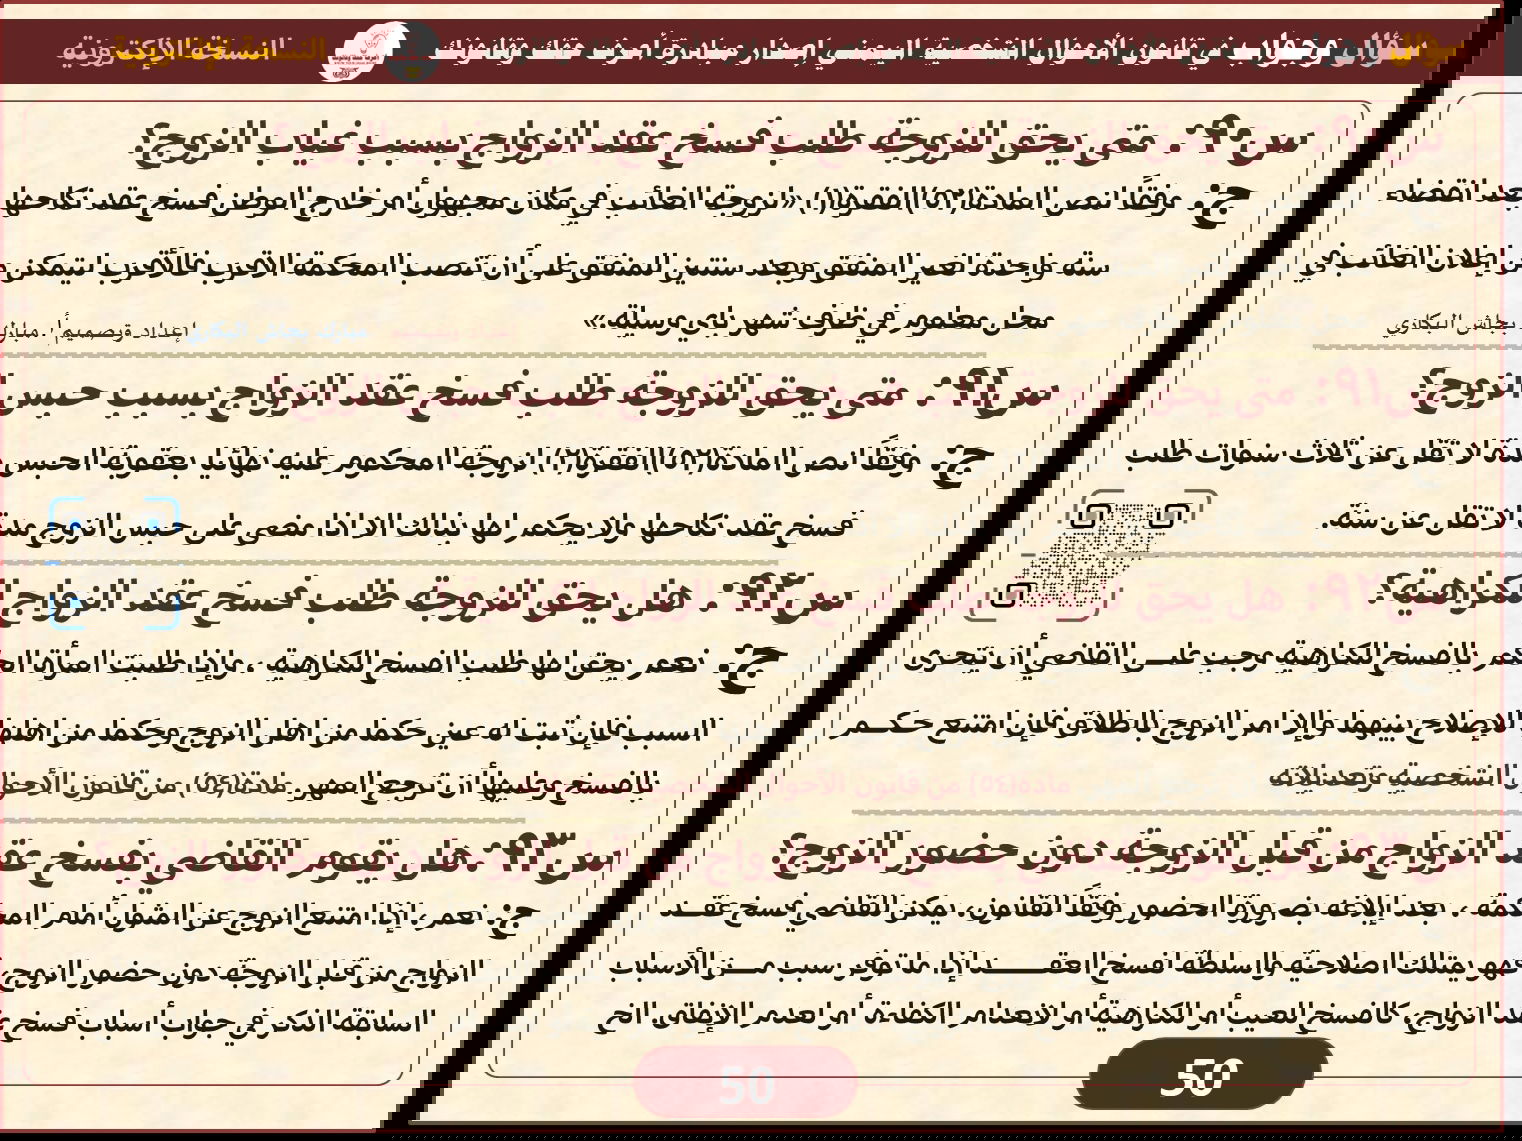 سؤال وجواب في قانون الأحوال الشخصية اليمني إصدار مبادرة أعرف حقك وقانونك
النسخة الإلكترونية
س٩٠: متى يحق للزوجة طلب فسخ عقد الزواج بسبب غياب الزوج؟
ج: وفقًا لنص المادة(٥٢)الفقرة(١) «لزوجة الغائب في مكان مجهول أو خارج الوطن فسخ عقد نكاحها بعد انقضاء
سنة واحدة لغير المنفق وبعد سنتين للمنفق على أن تنصب المحكمة الأقرب فالأقرب ليتمكن من إعلان الغائب في
محل معلوم في ظرف شهر باي وسيلة.»
إعداد وتصميم أ. مبارك بجاش البكاري
س٩١: متى يحق للزوجة طلب فسخ عقد الزواج بسبب حبس الزوج؟
ج: وفقًا لنص المادة(٥٢)الفقرة(٢) لزوجة المحكوم عليه نهائيا بعقوبة الحبس مدة لا تقل عن ثلاث سنوات طلب
فسخ عقد نكاحها ولا يحكم لها بذلك الا اذا مضى على حبس الزوج مدة لا تقل عن سنة.
س٩٢: هل يحق للزوجة طلب فسخ عقد الزواج للكراهية؟
ج: نعم يحق لها طلب الفسخ للكراهية ، وإذا طلبت المرأة الحكم بالفسخ للكراهية وجب علــى القاضي أن يتحرى
السبب فإن ثبت له عين حكما من اهل الزوج وحكما من اهلها للإصلاح بينهما وإلا امر الزوج بالطلاق فإن امتنع حـكــم
بالفسخ وعليها أن ترجع المهر. مادة(٥٤) من قانون الأحوال الشخصية وتعديلاته
س٩٣: هل يقوم القاضي بفسخ عقد الزواج من قبل الزوجة دون حضور الزوج؟
ج: نعم ، إذا امتنع الزوج عن المثول أمام المحكمة ، بعد إبلاغه بضرورة الحضور وفقًا للقانون، يمكن للقاضي فسخ عقــد
الزواج من قبل الزوجة دون حضور الزوج، فهو يمتلك الصلاحية والسلطة لفسخ العقـــــد إذا ما توفر سبب مـــن الأسباب
السابقة الذكر في جواب أسباب فسخ عقد الزواج، كالفسخ للعيب أو للكراهية أو لانعدام الكفاءة أو لعدم الإنفاق. الخ
50